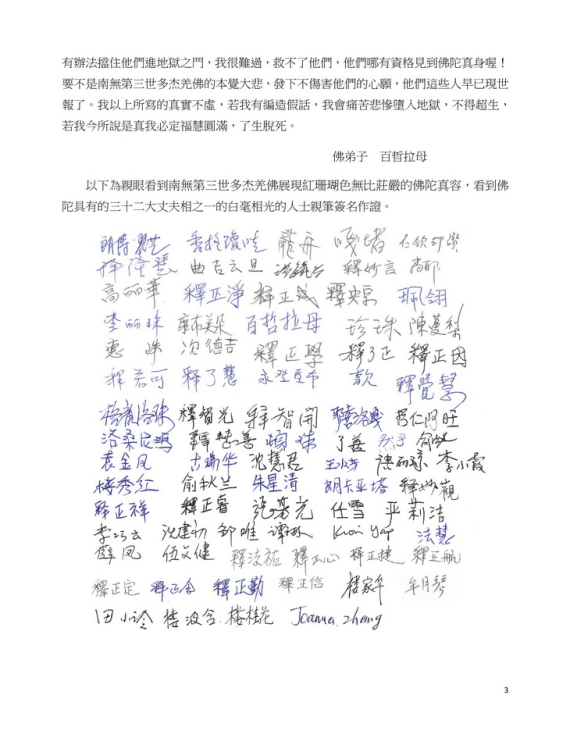 有辦法擋住他們進地獄之門，我很難過，救不了他們，他們哪有資格見到佛陀真身喔！
要不是南無第三世多杰羌佛的本覺大悲，發下不傷害他們的心願，他們這些人早已現世
報了。我以上所寫的真實不虛，若我有編造假話，我會痛苦悲慘墮入地獄，不得超生，
若我今所說是真我必定福慧圓滿，了生脫死。
佛弟子　百哲拉母
以下為親眼看到南無第三世多杰羌佛展現紅珊瑚色無比莊嚴的佛陀真容，看到佛
陀具有的三十二大丈夫相之一的白毫相光的人士親筆簽名作證。
龍舟 嘎堵
釋隆慧 曲吉云旦 釋妙言
高丽華 釋正淨 釋正 珮翎
李丽珠 百哲拉母 珍珠 陳
惠 珠 次德吉 釋正學 釋了正 釋正因
釋若可 釋了慧 釋覺慧
釋智光 釋智開 仁阿旺
洛桑尼瑪 了善
袁金凤 古瑞华 沈慧君 李小霞
梅秀红 俞秋兰 朱星清 朗卡亚塔 釋妙觀
釋正祥 釋正睿 任雪 严莉洁
李巧云 沈建初 邹唯 Kuoi Yap 法慧
薛凤 伍文健 釋正心 釋正捷
釋正定 釋正勤 釋正信 楼家年 牟月琴
田小玲 楼波含 楼桂花 Joanna. Zheng
3